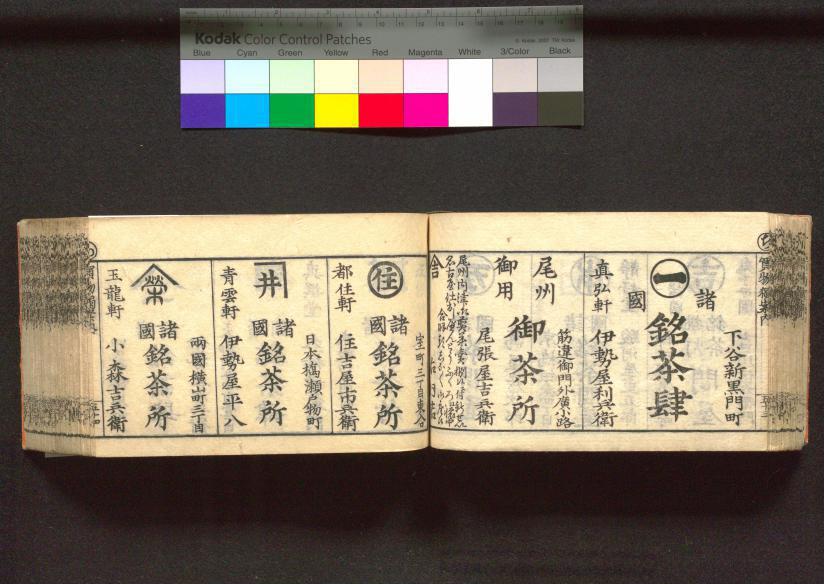 Kodak Color Control Patches
Blue Cyan Green Yellow Red Magenta White 3/Color Black
下谷新黒門町
諸
國
一
銘茶肆
真弘軒 伊勢屋利兵衛
筋違御門外廣小路
尾州
御用
御茶所
尾張屋吉兵衛
室町三丁目東
住
諸
國
銘茶所
都住軒 住吉屋市兵衛
日本橋瀬戸物町
井
諸
國
銘茶所
青雲軒 伊勢屋平八
兩國横山町三丁目
榮
諸
國
銘茶所
玉龍軒 小森吉兵衛